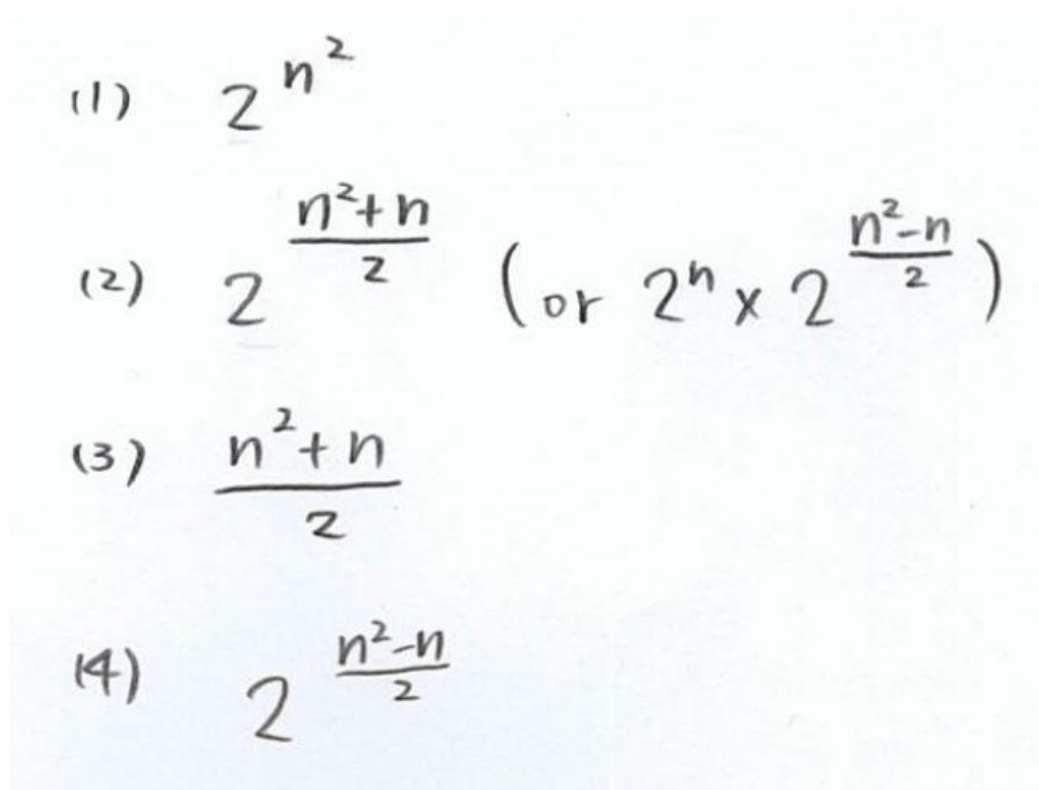 (1) 2^{n^2}
(2) 2^{\frac{n^2+n}{2}} (or 2^n × 2^{\frac{n^2-n}{2}})
(3) \frac{n^2+n}{2}
(4) 2^{\frac{n^2-n}{2}}